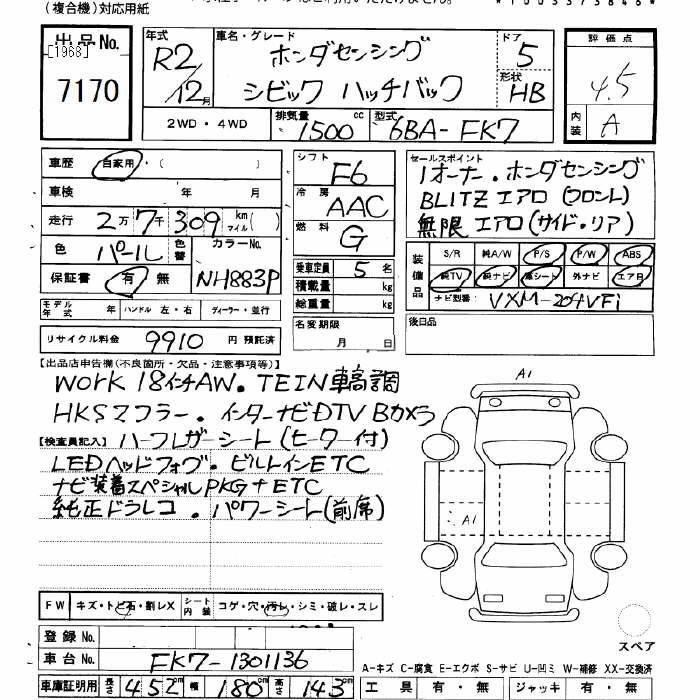 (複合機)対応用紙
出品No.
[1968]
7170
年式 R2/12月
車名・グレード
ホンダセンシング
シビック ハッチバック
ドア 5
形状 HB
評価点
4.5
内装 A
2WD・4WD
排気量 1500 cc
型式 6BA-FK7
車歴 自家用・( )
車検 年 月
走行 2万7千309 km マイル( )
色 パール 色替
カラーNo. NH883P
保証書 有 無
シフト F6
冷房 AAC
燃料 G
乗車定員 5名
積載量 kg
総重量 kg
セールスポイント
1オーナー・ホンダセンシング
BLITZ エアロ (フロント)
無限 エアロ(サイド・リア)
装備品
S/R 純A/W P/S P/W ABS
純TV 純ナビ 革シート 外ナビ エアB
ナビ型番 VXM-204VFi
モデル年式 年 ハンドル 左・右 ディーラー・並行
リサイクル料金 9910 円 預託済
名変期限 月 日
後日品
【出品店申告欄(不良箇所・欠品・注意事項等)】
WORK 18インチAW. TEIN車高調
HKSマフラー. インターナビDTV Bカメラ
【検査員記入】 ハーフレザーシート(ヒーター付)
LEDヘッドフォグ. ビルトインETC
ナビ装着スペシャルPKG+ETC
純正ドラレコ. パワーシート(前席)
A1
A1
FW キズ・トビ石・割レX
シート内装 コゲ・穴・汚レ・シミ・破レ・スレ
スペア
登録No.
車台No. FK7-1301136
A-キズ C-腐食 E-エクボ S-サビ U-凹ミ W-補修 XX-交換済
車庫証明用 長さ 452cm 幅 180cm 高さ 143cm
工具 有・無 ジャッキ 有・無